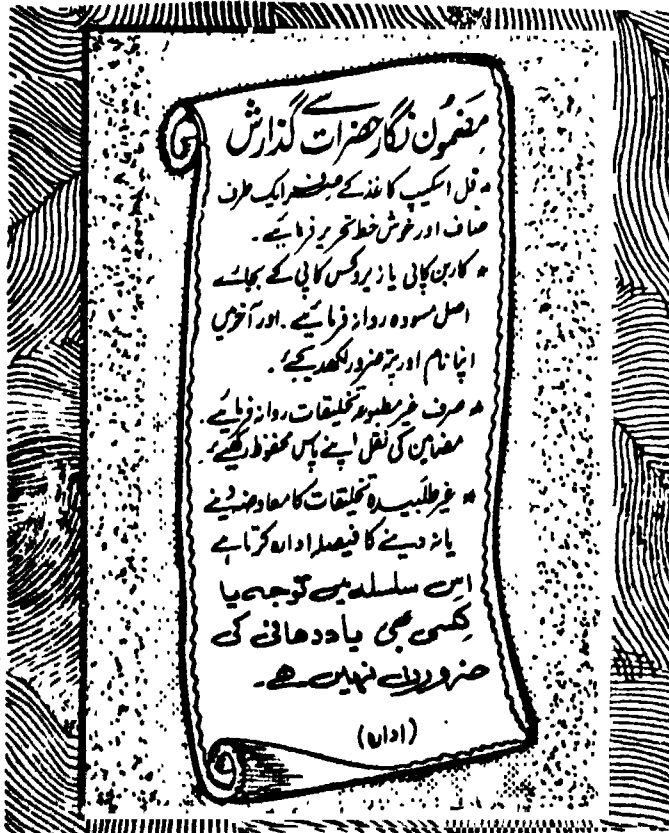 مضمون نگار حضرات سے گذارش
* فل اسکیپ کاغذ کے صرف ایک طرف
صاف اور خوش خط تحریر فرمائیے۔
* کاربن کاپی یا زیروکس کاپی کے بجائے
اصل مسودہ روانہ فرمائیے۔ اور آخر میں
اپنا نام اور پتہ ضرور لکھدیجئے۔
* صرف غیر مطبوعہ تخلیقات روانہ فرمائیے۔
مضامین کی نقل اپنے پاس محفوظ رکھیئے۔
* غیر طلبیدہ تخلیقات کا معاوضہ دینے
یا نہ دینے کا فیصلہ ادارہ کرتا ہے
اس سلسلہ میں توجہ یا
کسی بھی یاددھانی کی
ضرورت نہیں ہے۔
(ادارہ)